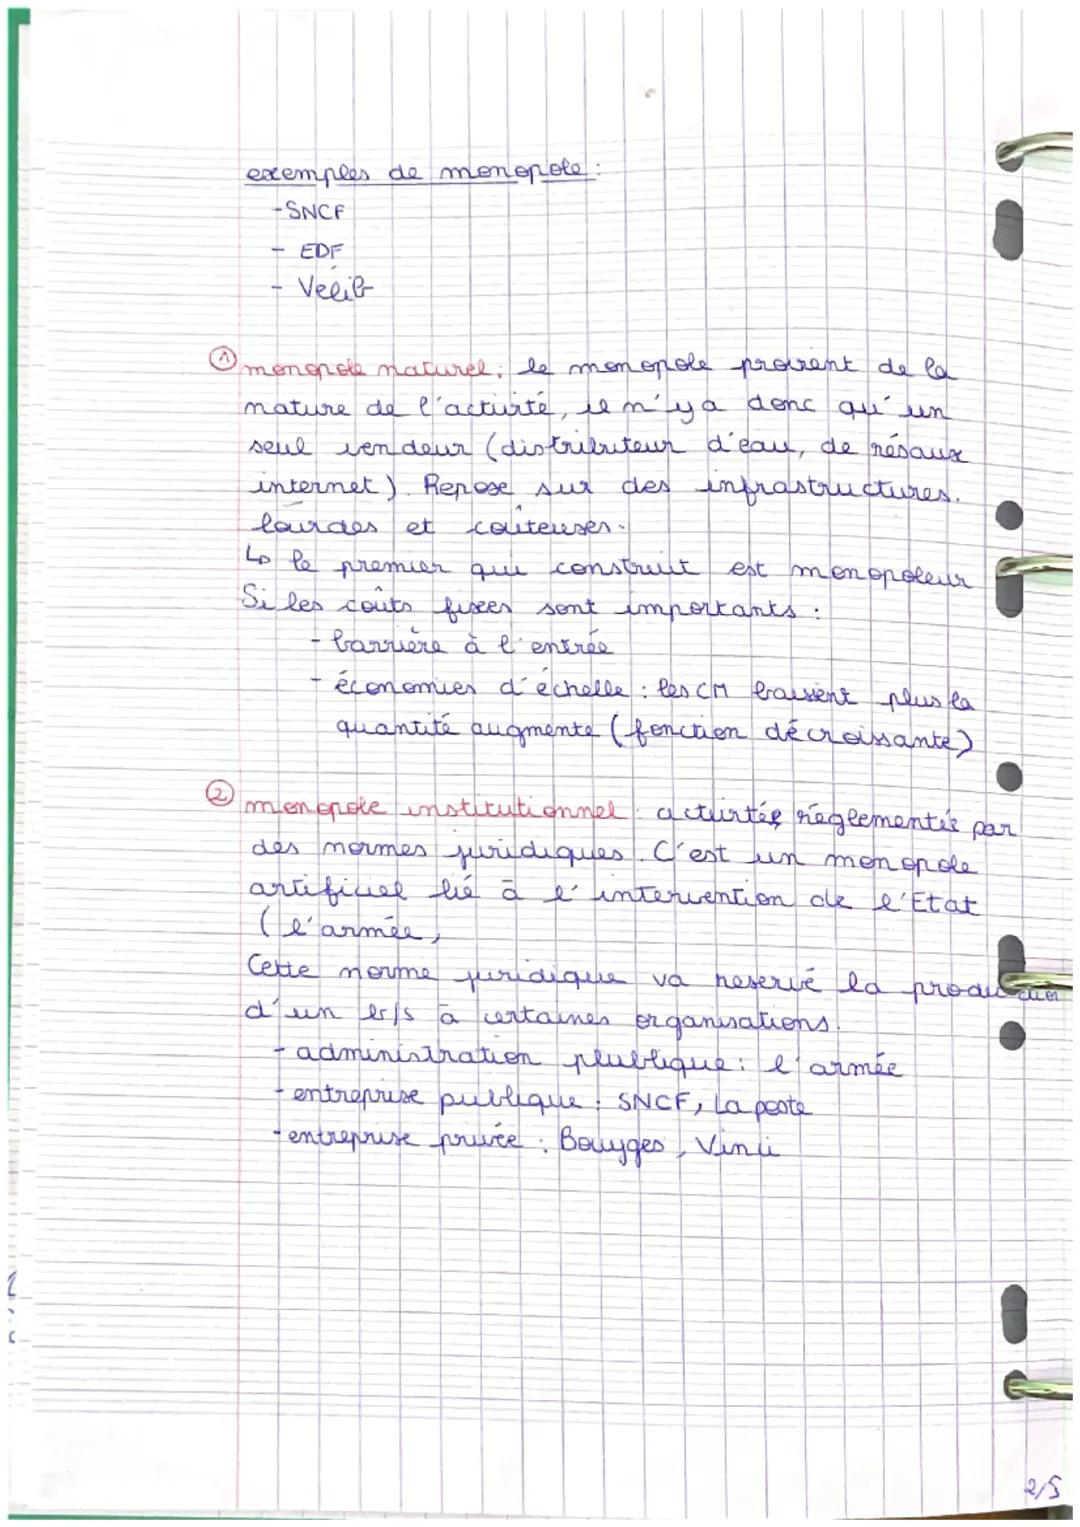 exemples de monopole :
- SNCF
- EDF
- Vélib
① monopole naturel : le monopole provient de la
nature de l'activité, il n'y a donc qu'un
seul vendeur (distributeur d'eau, de résaux
internet). Repose sur des infrastructures
lourdes et coûteuses.
↳ le premier qui construit est monopoleur
Si les coûts fixes sont importants :
- barrière à l'entrée
- économies d'échelle : les CM baissent plus la
quantité augmente (fonction décroissante)
② monopole institutionnel : activités réglementés par
des normes juridiques. C'est un monopole
artificiel lié à l'intervention de l'Etat
(l'armée,
Cette norme juridique va reservé la production
d'un b/s à certaines organisations.
- administration publique : l'armée
- entreprise publique : SNCF, La poste
- entreprise privée : Bouyges, Vinci
2/5